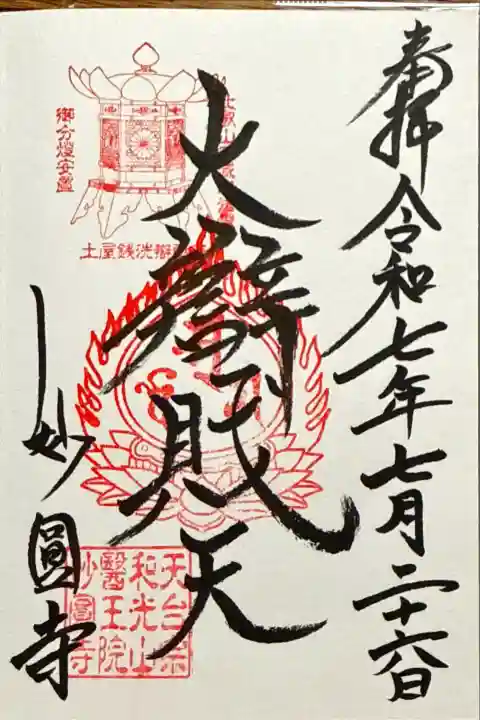 奉拝
令和七年七月二十六日
大辯財天
妙圓寺
御分燈安置
土屋銭洗辯
天台宗
和光山
醫王院
妙圓寺